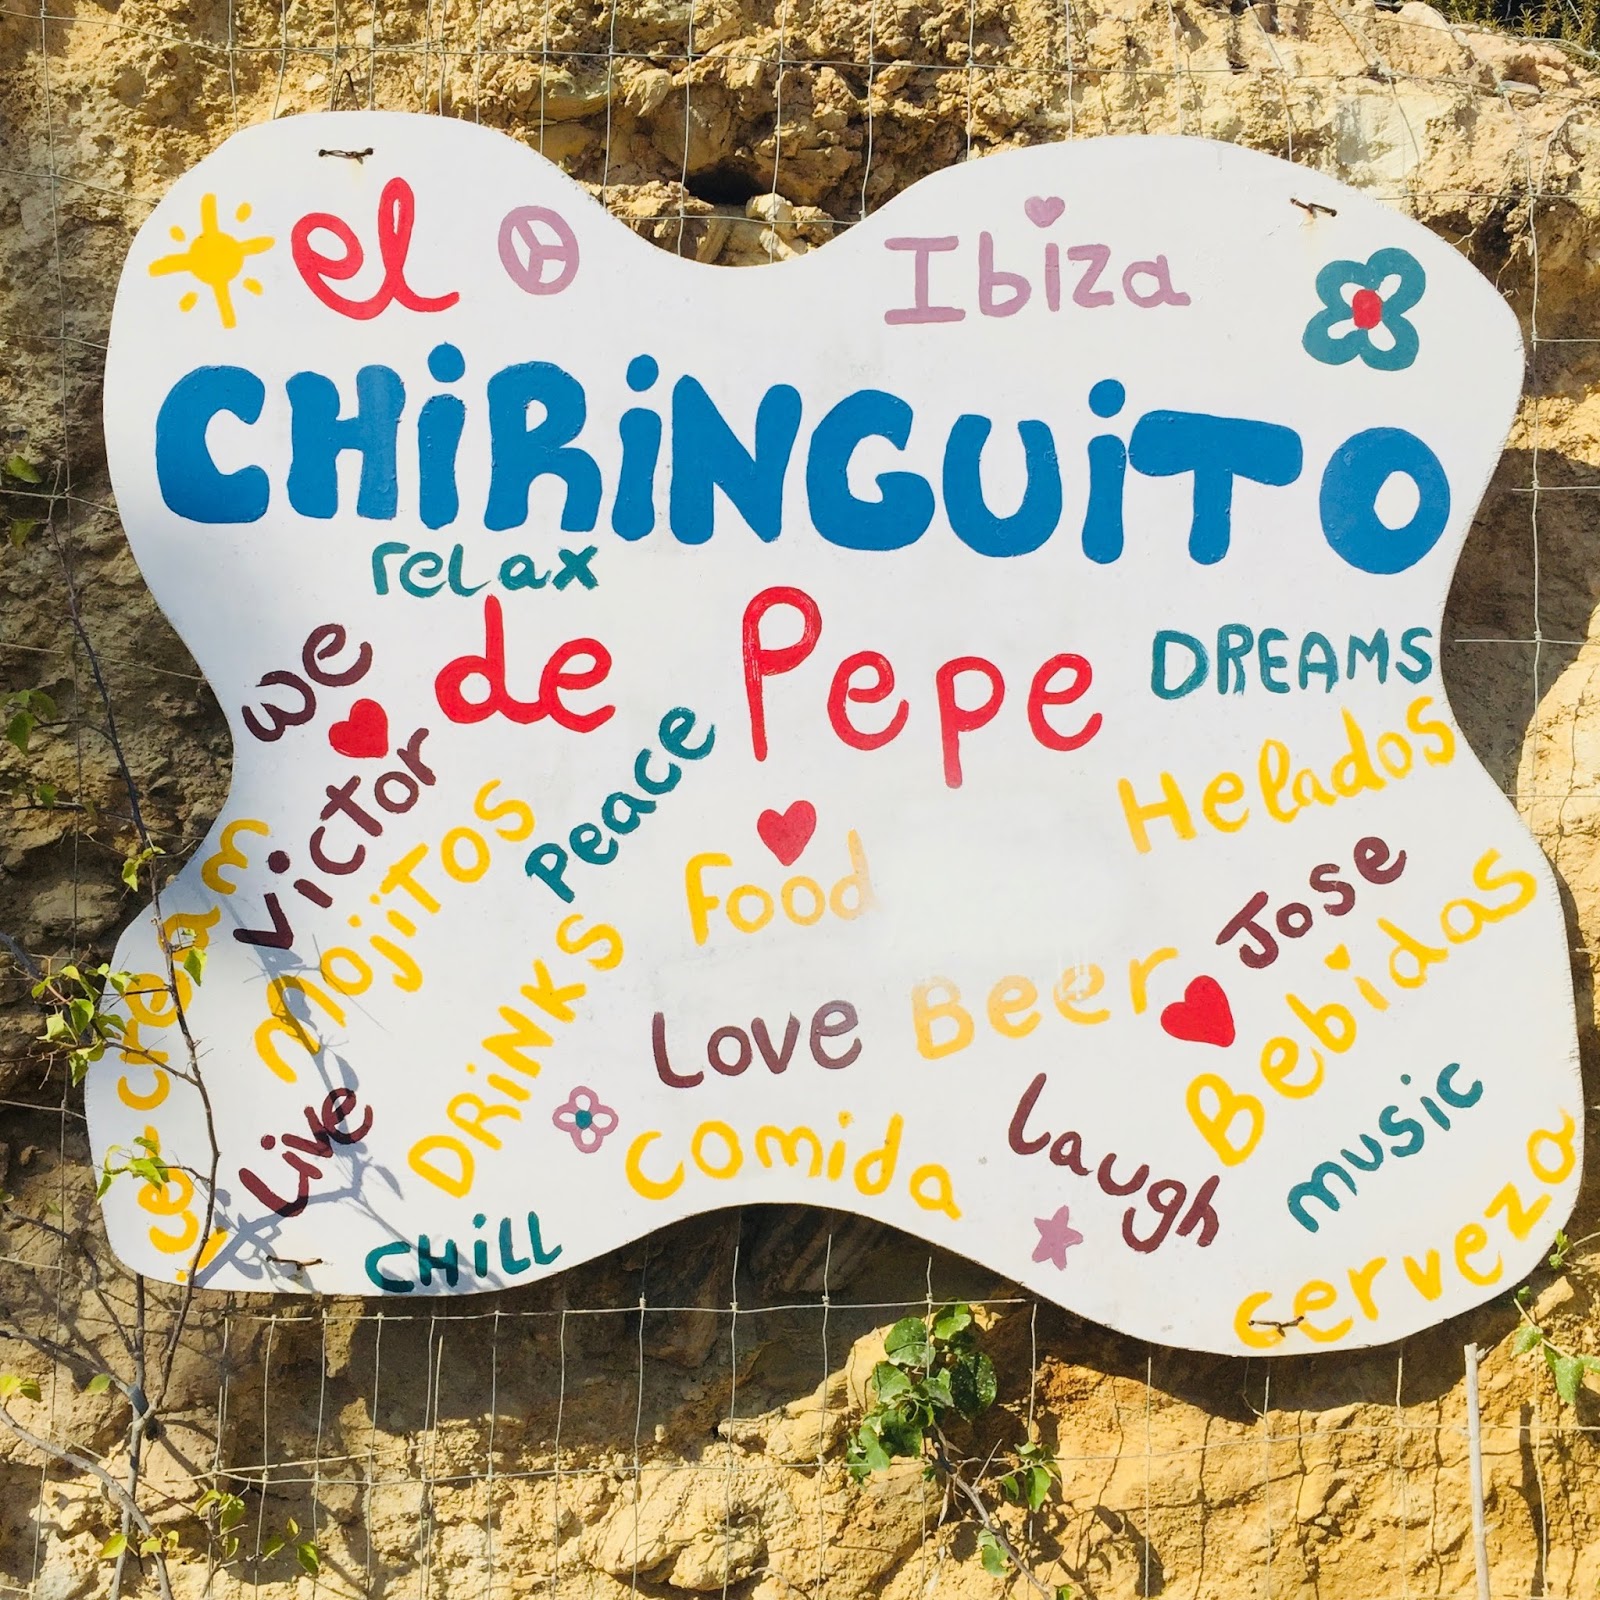 el
Ibiza
CHiRiNGUiTO
relax
de Pepe
DREAMS
we
Victor
Peace
Helados
mojitos
Food
Jose
ice cream
DRiNKS
Love
Beer
Bebidas
Live
comida
Laugh
music
CHiLL
cerveza